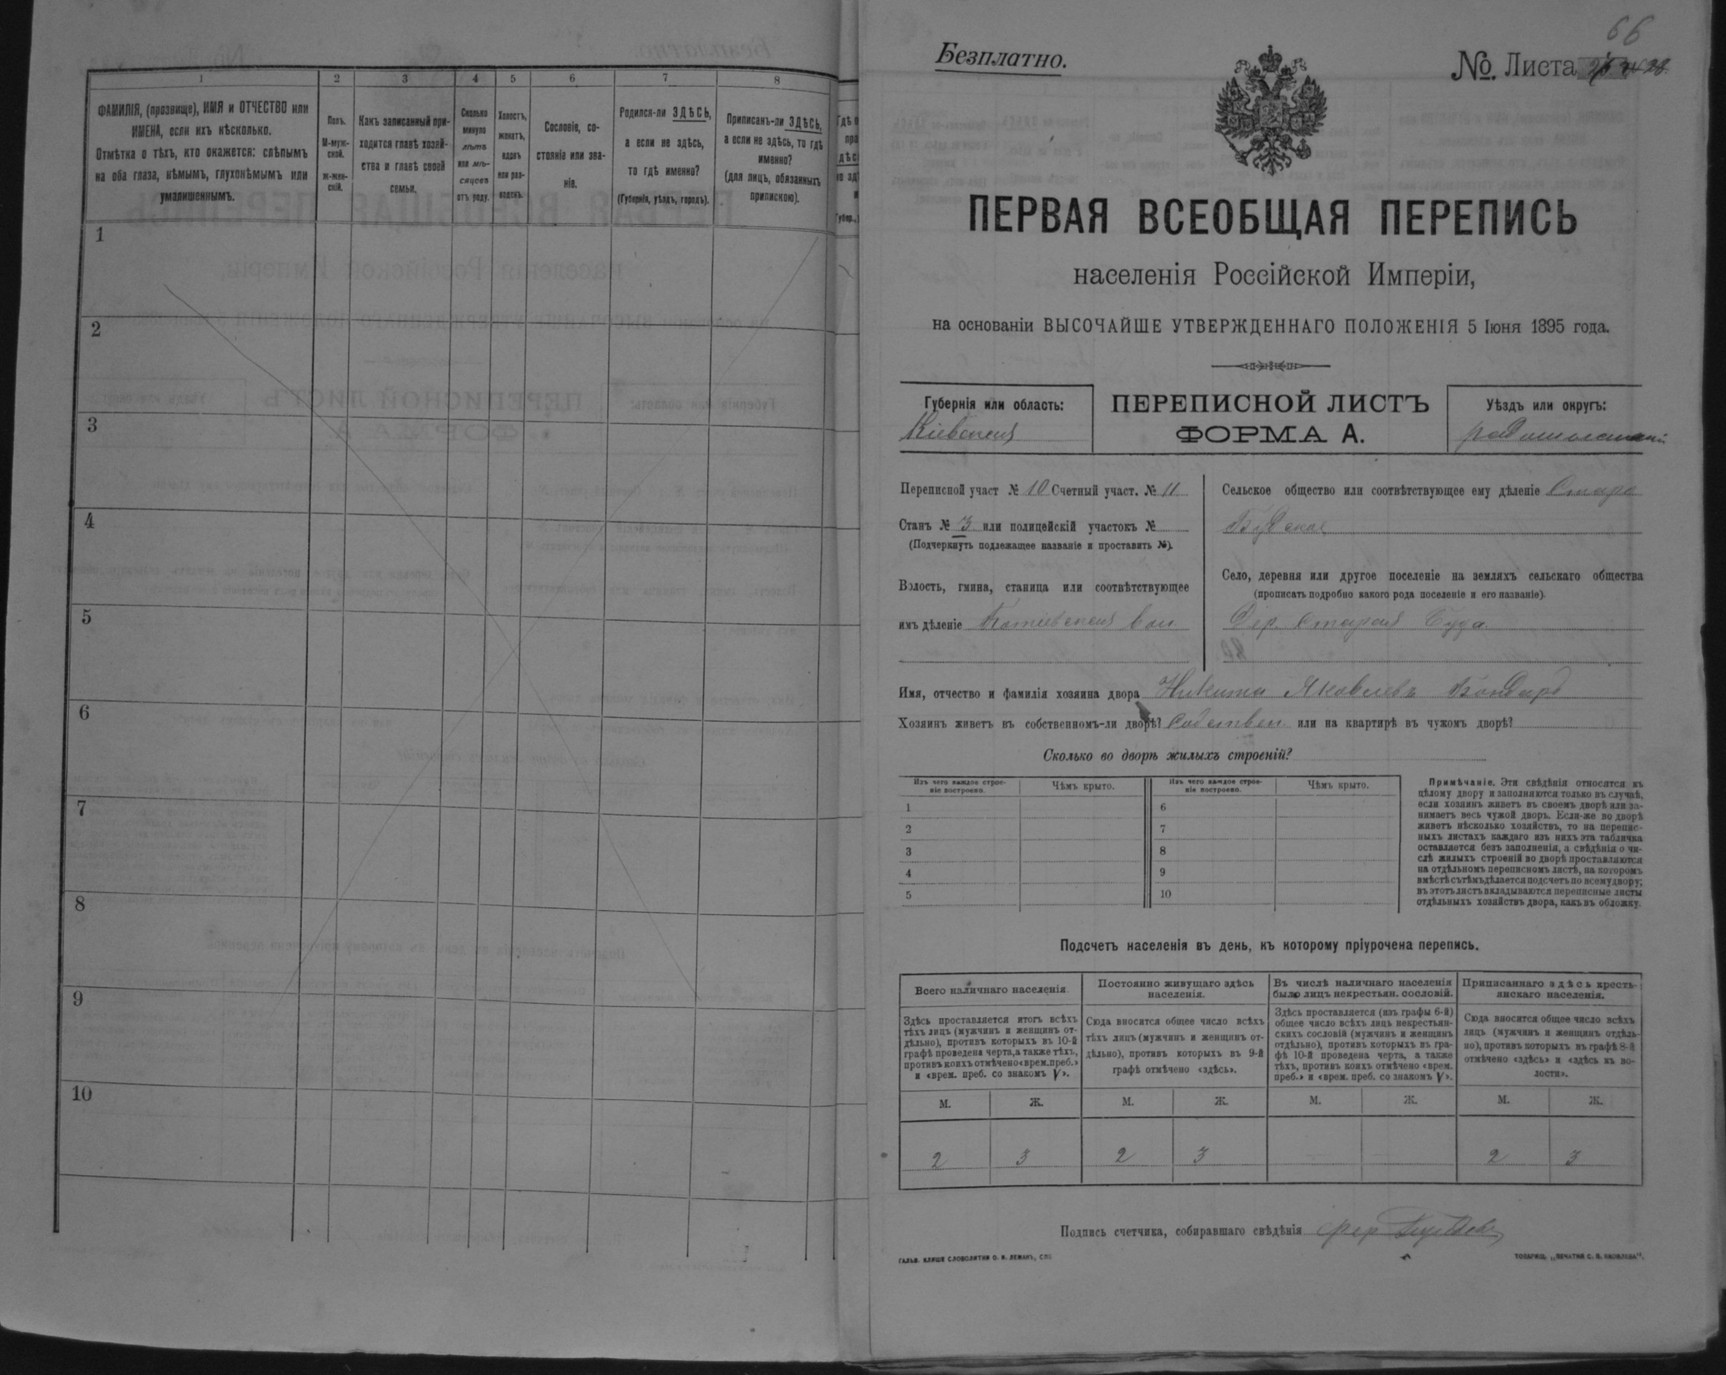 1 2 3 4 5 6 7 8
ФАМИЛІЯ, (прозвище), ИМЯ и ОТЧЕСТВО или
ИМЕНА, если ихъ нѣсколько.
Отмѣтка о тѣхъ, кто окажется: слѣпымъ
на оба глаза, нѣмымъ, глухонѣмымъ или
умалишеннымъ.
Полъ.
М-муж-
ской.
Ж-жен-
скій.
Какъ записанный при-
ходится главѣ хозяй-
ства и главѣ своей
семьи.
Сколько
минуло
лѣтъ
или мѣ-
сяцевъ
отъ роду.
Холостъ,
женатъ,
вдовъ
или раз-
веденъ.
Сословіе, со-
стояніе или зва-
ніе.
Родился-ли ЗДѢСЬ,
а если не здѣсь,
то гдѣ именно?
(Губернія, уѣздъ, городъ).
Приписанъ-ли ЗДѢСЬ,
а если не здѣсь, то гдѣ
именно?
(для лицъ, обязанныхъ
припискою).
1
2
3
4
5
6
7
8
9
10
66
Безплатно.
№ Листа
ПЕРВАЯ ВСЕОБЩАЯ ПЕРЕПИСЬ
населенія Россійской Имперіи,
на основаніи ВЫСОЧАЙШЕ УТВЕРЖДЕННАГО ПОЛОЖЕНІЯ 5 Іюня 1895 года.
Губернія или область:
Кіевская
ПЕРЕПИСНОЙ ЛИСТЪ
ФОРМА А.
Уѣздъ или округъ:
Радомысльскій
Переписной участ № 10 Счетный участ. № 11
Станъ № 3 или полицейскій участокъ №
(Подчеркнуть подлежащее названіе и проставить №).
Волость, гмина, станица или соотвѣтствующее
имъ дѣленіе Потіевская вол
Сельское общество или соотвѣтствующее ему дѣленіе Старо
Будское
Село, деревня или другое поселеніе на земляхъ сельскаго общества
(прописать подробно какого рода поселеніе и его названіе).
Дер. Старая Буда
Имя, отчество и фамилія хозяина двора Никита Яковлевъ Бондарь
Хозяинъ живетъ въ собственномъ-ли дворѣ? Собствен или на квартирѣ въ чужомъ дворѣ?
Сколько во дворѣ жилыхъ строеній?
Изъ чего каждое строе-
ніе построено.
Чѣмъ крыто.
Изъ чего каждое строе-
ніе построено.
Чѣмъ крыто.
1 6
2 7
3 8
4 9
5 10
Примѣчаніе. Эти свѣдѣнія относятся къ
цѣлому двору и заполняются только въ случаѣ,
если хозяинъ живетъ въ своемъ дворѣ или за-
нимаетъ весь чужой дворъ. Если-же во дворѣ
живетъ нѣсколько хозяйствъ, то на перепис-
ныхъ листахъ каждаго изъ нихъ эта табличка
оставляется безъ заполненія, а свѣдѣнія о чи-
слѣ жилыхъ строеній во дворѣ проставляются
на отдѣльномъ переписномъ листѣ, на которомъ
вмѣстѣ съ тѣмъ дѣлается подсчетъ по всему двору;
въ этотъ листъ вкладываются переписные листы
отдѣльныхъ хозяйствъ двора, какъ въ обложку.
Подсчетъ населенія въ день, къ которому пріурочена перепись.
Всего наличнаго населенія.
Здѣсь проставляется итогъ всѣхъ
тѣхъ лицъ (мужчинъ и женщинъ от-
дѣльно), противъ которыхъ въ 10-й
графѣ проведена черта, а также тѣхъ,
противъ коихъ отмѣчено «врем. преб.»
и «врем. преб. со знакомъ V».
Постоянно живущаго здѣсь
населенія.
Сюда вносится общее число всѣхъ
тѣхъ лицъ (мужчинъ и женщинъ от-
дѣльно), противъ которыхъ въ 9-й
графѣ отмѣчено «здѣсь».
Въ числѣ наличнаго населенія
было лицъ некрестьян. сословій.
Здѣсь проставляется (изъ графы 6-й)
общее число всѣхъ лицъ некрестьян-
скихъ сословій (мужчинъ и женщинъ
отдѣльно), противъ которыхъ въ гра-
фѣ 10-й проведена черта, а также
тѣхъ, противъ коихъ отмѣчено «врем.
преб.» и «врем. преб. со знакомъ V».
Приписаннаго здѣсь кресть-
янскаго населенія.
Сюда вносится общее число всѣхъ
лицъ (мужчинъ и женщинъ отдѣль-
но), противъ которыхъ въ графѣ 8-й
отмѣчено «здѣсь» и «здѣсь къ во-
лости».
М. Ж. М. Ж. М. Ж. М. Ж.
2 3 2 3 2 3
Подпись счетчика, собиравшаго свѣдѣнія
ГАЛЬВ. КЛИШЕ СЛОВОЛИТНИ О. И. ЛЕМАНЪ, СПБ
ТОВАРИЩ. „ПЕЧАТНЯ С. П. ЯКОВЛЕВА“.